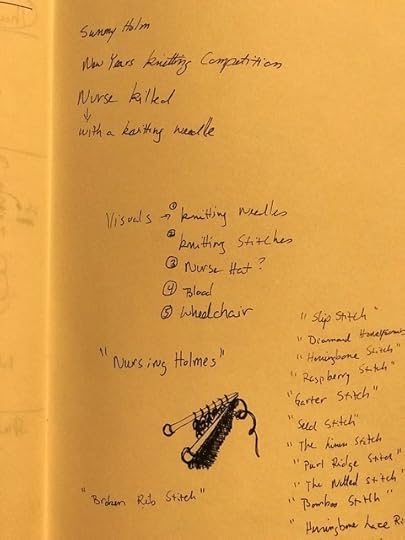 Sunny Holm
New Years knitting Competition
Nurse killed
↓
with a knitting needle
Visuals → ① knitting needles
② knitting Stitches
③ Nurse Hat?
④ Blood
⑤ Wheelchair
"Nursing Holmes"
"Broken Rib Stitch"
"Slip Stitch"
"Diamond Honeycomb
"Herringbone Stitch"
"Raspberry Stitch"
"Garter Stitch"
"Seed Stitch"
"The Linen Stitch
"Purl Ridge Stitch"
"The Knitted Stitch"
"Bamboo Stitch"
"Herringbone Lace Ri